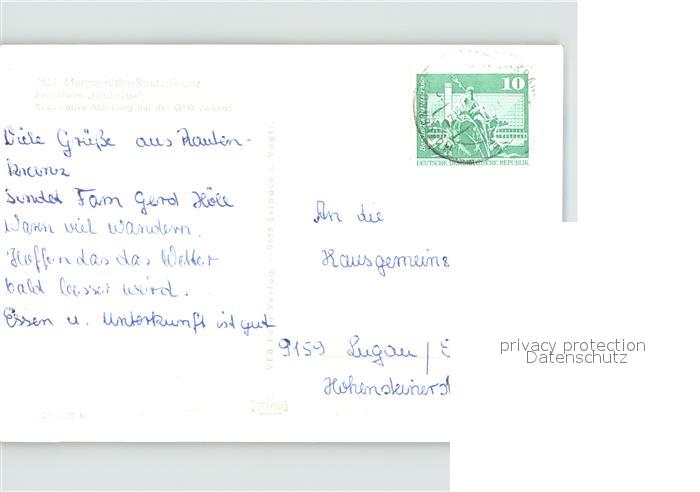 9651 Morgenröthe-Rautenkranz
Ferienheim „Frischhütte"
Kooperative Abteilung bei der
10
DEUTSCHE DEMOKRATISCHE REPUBLIK
Viele Grüße aus Rauten-
kranz
sendet Fam Gerd
Waren viel wandern.
Hoffen das das Wetter
bald besser wird.
Essen u. Unterkunft ist gut
An die
Hausgemeine
9159 Lugau / E
Hohensteinerst
VEB Verlag 9658 Erlbach i. Vogtl.
privacy protection
Datenschutz